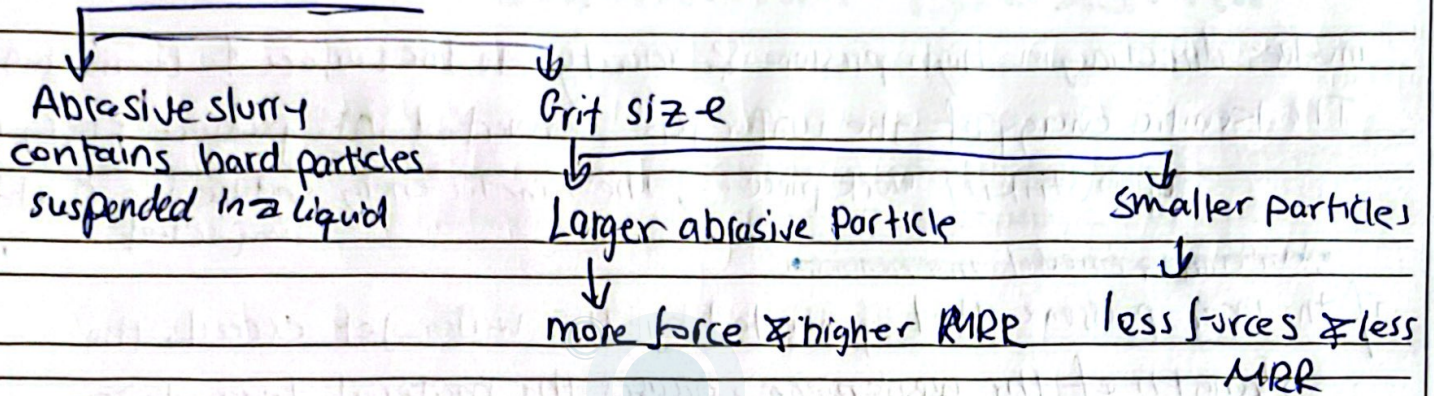 Abrasive slurry
contains hard particles
suspended in a liquid
Grit size
Larger abrasive Particle
more force & higher MRR
smaller particles
less forces & less
MRR